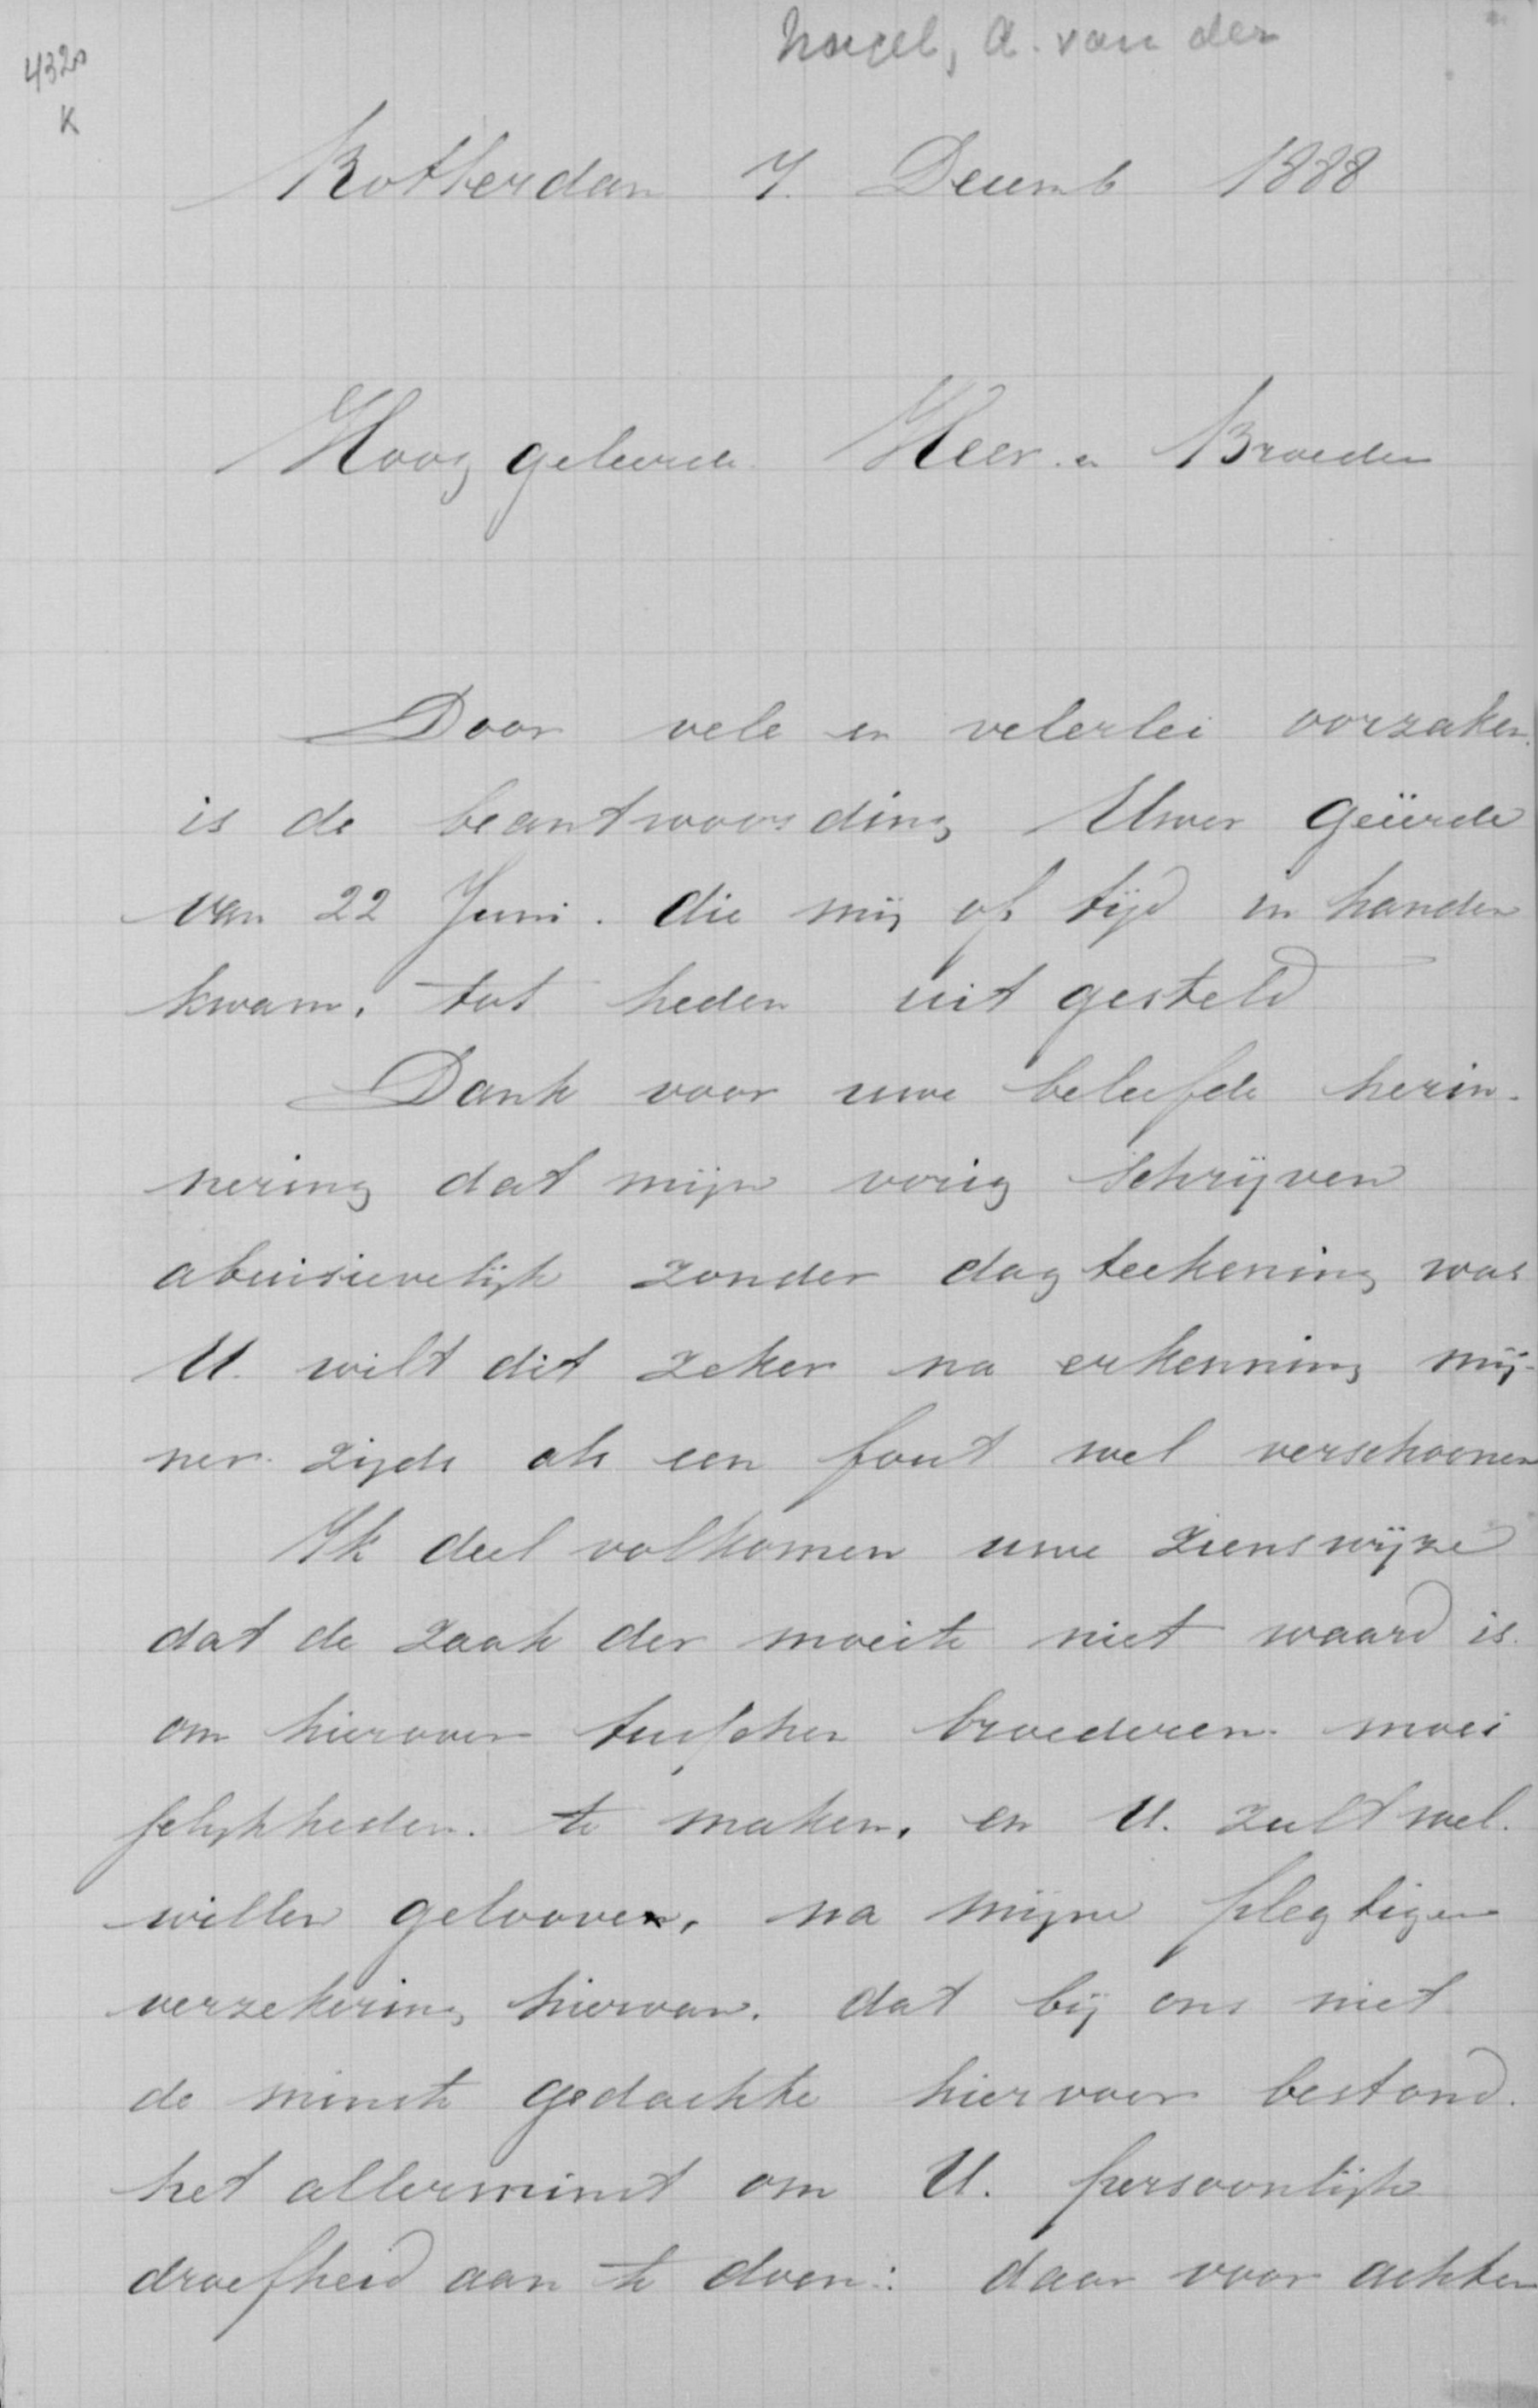 4320
K
a. van der
Rotterdam 7. Decemb 1888
Hoog geleerde Heer en Broeder
Door vele en velerlei oorzaken
is de beantwoording Uwer geëerde
van 22 Juni. die mij op tijd in handen
kwam, tot heden uit gesteld
Dank voor uwe beleefde herin-
nering dat mijn vorig schrijven
abuisievelijk zonder dagteekening was
U. wilt dit zeker na erkenning mij-
ner zijds als een fout wel verschoonen
Ik deel volkomen uwe zienswijze
dat de zaak der moeite niet waard is.
om hierover tusschen broederen moei
felijkheden te maken, en U. zult wel.
willen gelooven, na mijne plegtigen
verzekering hiervan. dat bij ons niet
de minste gedachte hiervoor bestond.
het allerminst om U. persoonlijk
droefheid aan te doen: daar voor achten